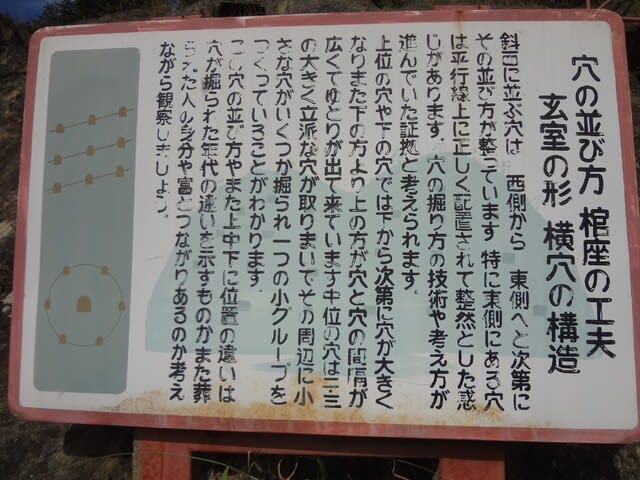 穴の並び方 棺座の工夫
玄室の形 横穴の構造
斜面に並ぶ穴は 西側から 東側へと次第に
その並び方が整っています 特に東側にある穴
は平行線上に正しく配置されて整然とした感
じがあります。穴の掘り方の技術や考え方が
進んでいた証拠と考えられます。
上位の穴や下の穴では下から次第に穴が大きく
なりまた下の方より上の方が穴と穴の間隔が
広くてゆとりが出て来ています中位の穴は二三
の大きく立派な穴が取りまいてその周辺に小
さな穴がいくつか掘られ一つの小グループを
つくっていることがわかります.
この穴の並び方やまた上中下に位置の違いは
穴が掘られた年代の違いを示すものかまた葬
られた人の身分や富とつながりあるのか考え
ながら観察しましょう。